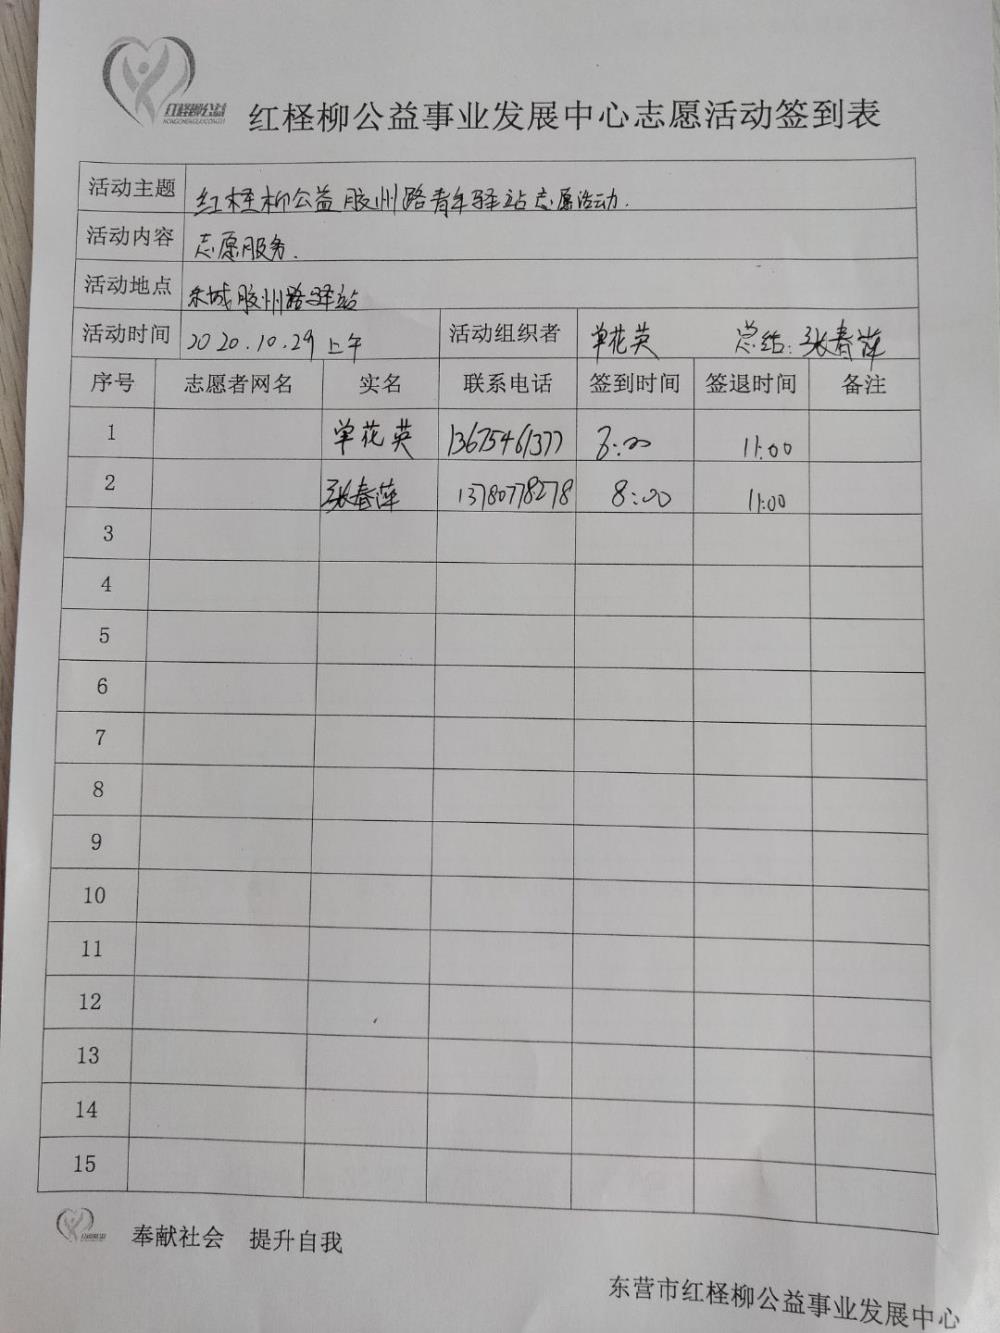 红柽柳公益
红柽柳公益事业发展中心志愿活动签到表
活动主题 红柽柳公益胶州路青年驿站志愿活动.
活动内容 志愿服务.
活动地点 东城胶州路驿站
活动时间 2020.10.29上午 活动组织者 单花英 总结:张春萍
序号 志愿者网名 实名 联系电话 签到时间 签退时间 备注
1 单花英 13675461377 8:00 11:00
2 张春萍 13780778278 8:00 11:00
3
4
5
6
7
8
9
10
11
12
13
14
15
奉献社会 提升自我
东营市红柽柳公益事业发展中心